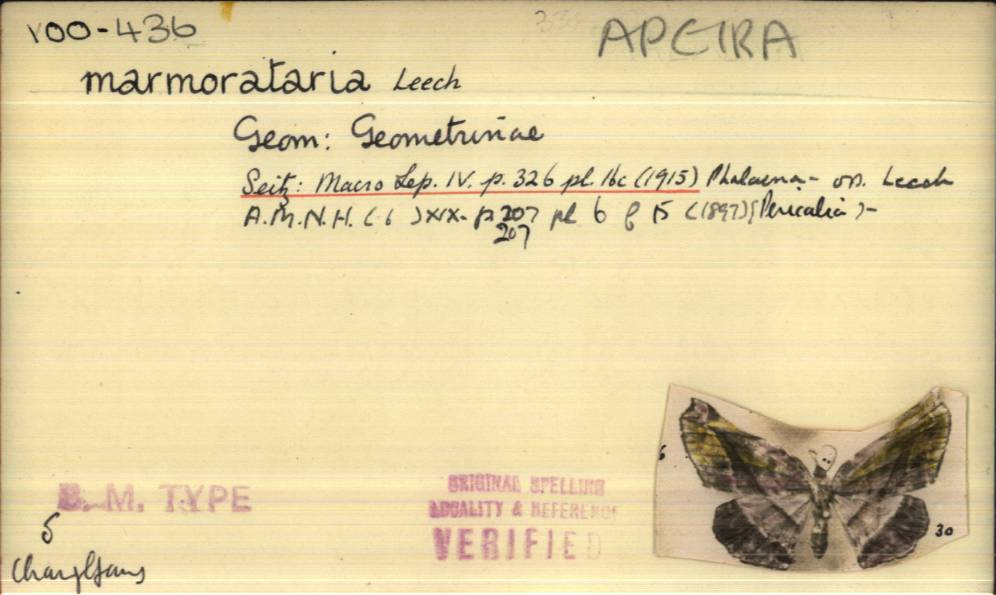 100-436
APEIRA
marmorataria Leech
Geom: Geometrinae
Seitz: Macro Lep. IV. p. 326 pl. 16c (1915) Phalaena - on. Leech
A.M.N.H. (6) XIX. p 207 pl 6 f 15 (1897) (Pericalia) -
207
6
30
B. M. TYPE
ORIGINAL SPELLING
LOCALITY & REFERENCE
VERIFIED